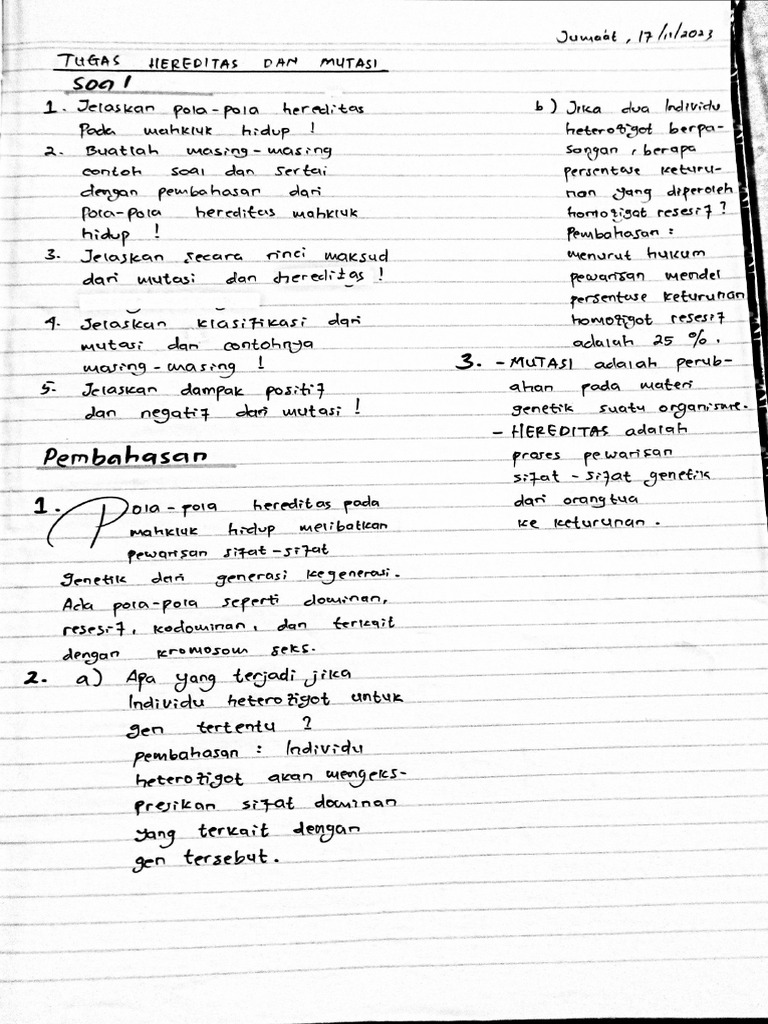 Jumaát, 17/11/2023
TUGAS HEREDITAS DAN MUTASI
Soal
1. Jelaskan pola-pola hereditas
Pada mahkluk hidup !
2. Buatlah masing-masing
contoh soal dan sertai
dengan pembahasan dari
Pola-pola hereditas mahkluk
hidup !
3. Jelaskan secara rinci maksud
dari mutasi dan hereditas !
4. Jelaskan klasifikasi dari
mutasi dan contohnya
masing-masing !
5. Jelaskan dampak positif
dan negatif dari mutasi !
Pembahasan
1. Pola-pola hereditas pada
mahkluk hidup melibatkan
pewarisan sifat-sifat
Genetik dari generasi kegenerasi.
Ada pola-pola seperti dominan,
resesif, kodominan, dan terkait
dengan kromosom seks.
2. a) Apa yang terjadi jika
Individu heterozigot untuk
gen tertentu ?
pembahasan : Individu
heterozigot akan mengeks-
presikan sifat dominan
yang terkait dengan
gen tersebut.
b) Jika dua Individu
heterozigot berpa-
sangan, berapa
persentase keturu-
nan yang diperoleh
homozigot resesif ?
Pembahasan :
menurut hukum
pewarisan mendel
persentase keturunan
homozigot resesif
adalah 25 %.
3. - MUTASI adalah perub-
ahan pada materi
genetik suatu organisme.
- HEREDITAS adalah
proses pewarisan
sifat-sifat genetik
dari orangtua
ke keturunan.